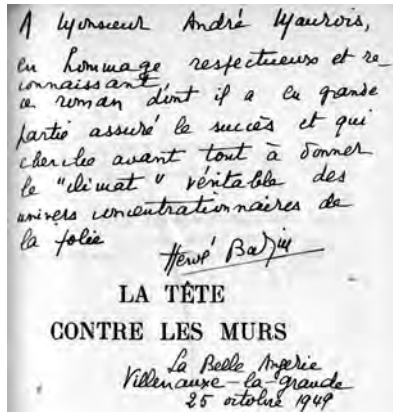 A Monsieur André Maurois,
en hommage respectueux et re-
connaissant,
ce roman dont il a en grande
partie assuré le succès et qui
cherche avant tout à donner
le "climat" véritable des
univers concentrationnaires de
la folie
Hervé Bazin
LA TÊTE
CONTRE LES MURS
La Belle Angerie
Villenauxe-la-grande
25 octobre 1949